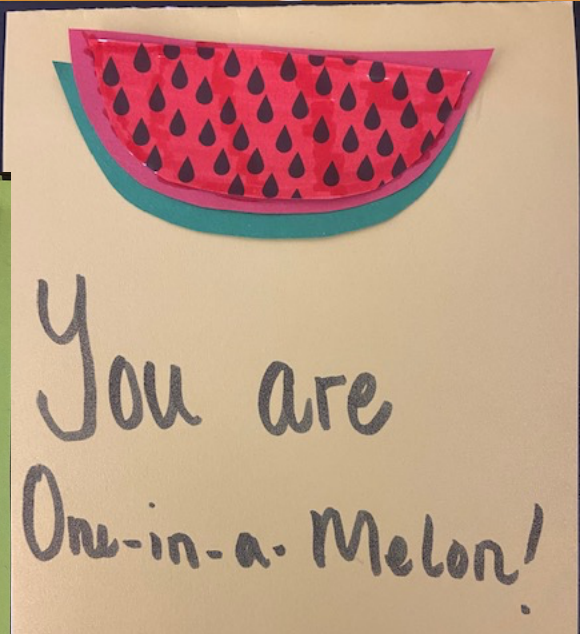 You are
One-in-a-Melon!